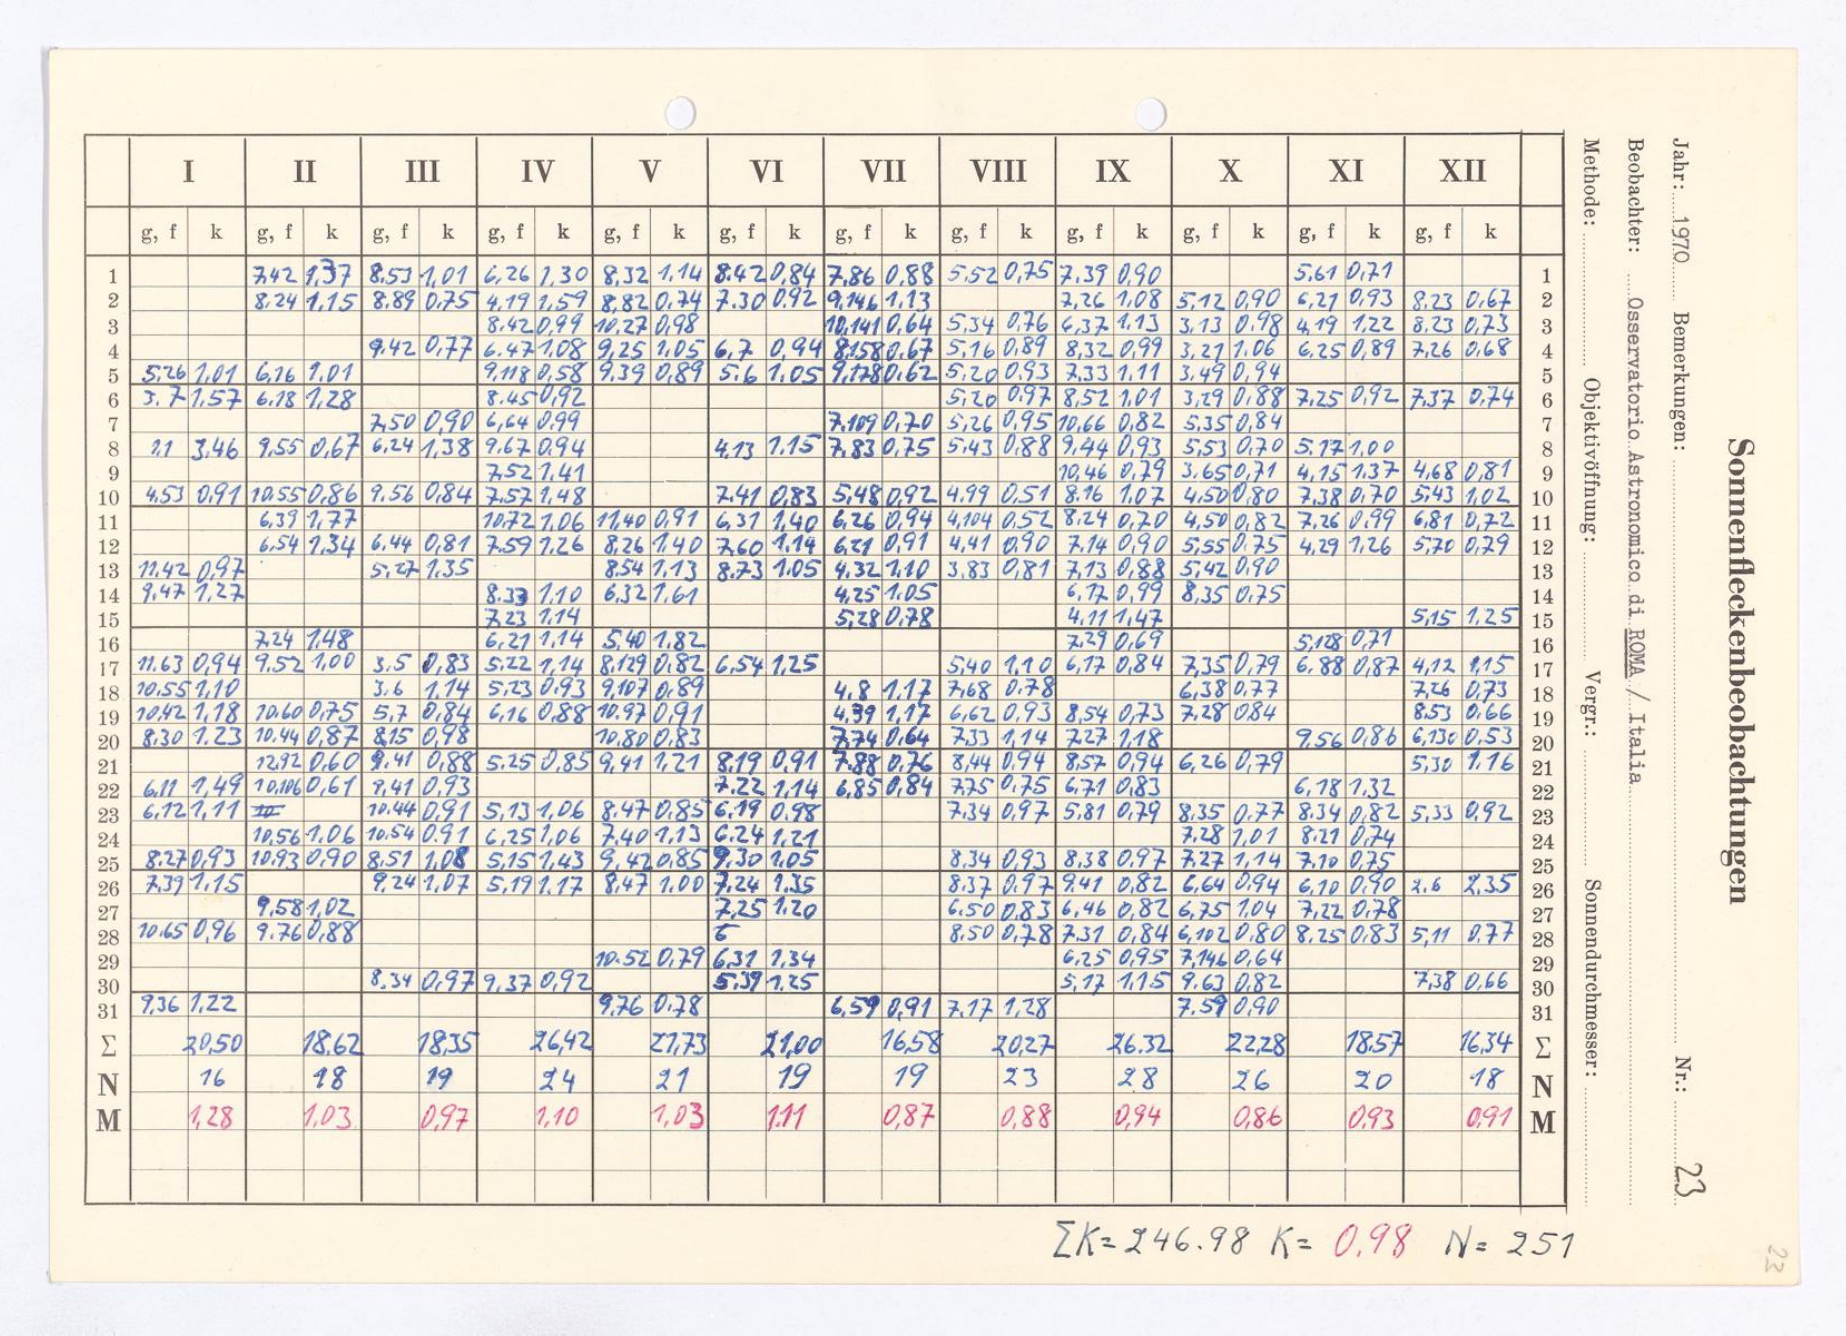 I II III IV V VI VII VIII IX X XI XII
g, f k g, f k g, f k g, f k g, f k g, f k g, f k g, f k g, f k g, f k g, f k g, f k
1 7,42 1,37 8,53 1,01 6,26 1,30 8,32 1.14 8.42 0,84 7,86 0,88 5,52 0,75 7,39 0,90 5,61 0,71 1
2 8,24 1,15 8,89 0,75 4,19 1,59 8,82 0,74 7.30 0,92 9,146 1,13 7,26 1,08 5,12 0,90 6,21 0,93 8,23 0,67 2
3 8,42 0,99 10,27 0,98 10,141 0,64 5,34 0,76 6,37 1,13 3,13 0,98 4,19 1,22 8,23 0,73 3
4 9,42 0,77 6.47 1,08 9,25 1,05 6,7 0,94 8,158 0,67 5,16 0,89 8,32 0,99 3,21 1.06 6,25 0,89 7,26 0,68 4
5 5,26 1,01 6,16 1,01 9,118 0,58 9.39 0,89 5.6 1.05 9,178 0,62 5,20 0,93 7,33 1,11 3,49 0,94 5
6 3.7 1,57 6,18 1,28 8.45 0,92 5,20 0,97 8,52 1,01 3,29 0,88 7,25 0,92 7,37 0,74 6
7 7,50 0,90 6,64 0,99 7,109 0,70 5,26 0,95 10,66 0,82 5.35 0,84 7
8 1.1 3,46 9,55 0,67 6,24 1,38 9.67 0,94 4.13 1.15 7,83 0,75 5,43 0,88 9,44 0,93 5,53 0,70 5.17 1,00 8
9 7,52 1,41 10,46 0,79 3.65 0,71 4,15 1.37 4,68 0,81 9
10 4,53 0,91 10.55 0,86 9,56 0,84 7,57 1,48 7,41 0,83 5,48 0,92 4,99 0,51 8,16 1,07 4,50 0,80 7,38 0,70 5,43 1,02 10
11 6,39 1,77 10,72 1,06 11,40 0,91 6,31 1,40 6,26 0,94 4,104 0,52 8,24 0,70 4,50 0,82 7,26 0,99 6,81 0,72 11
12 6,54 1,34 6,44 0,81 7.59 1,26 8,26 1.40 7,60 1,14 6,21 0,91 4,41 0,90 7,14 0,90 5,55 0.75 4,29 1,26 5,70 0,79 12
13 11,42 0,97 5,27 1.35 8.54 1,13 8.73 1.05 4.32 1,10 3,83 0,81 7,13 0,88 5,42 0,90 13
14 9,47 1,27 8.33 1,10 6,32 1,61 4,25 1.05 6,17 0,99 8,35 0,75 14
15 7,23 1.14 5,28 0,78 4.11 1,47 5,15 1,25 15
16 7,24 1,48 6,21 1,14 5,40 1,82 7,29 0,69 5,128 0,71 16
17 11.63 0,94 9,52 1,00 3,5 0,83 5.22 1,14 8,129 0,82 6,54 1,25 5,40 1,10 6,17 0,84 7,35 0,79 6,88 0,87 4,12 1,15 17
18 10,55 1,10 3.6 1,14 5,23 0,93 9,107 0,89 4.8 1.17 7,68 0.78 6,38 0,77 7,26 0,73 18
19 10,42 1,18 10.60 0,75 5.7 0,84 6,16 0,88 10.97 0,91 4,39 1,17 6,62 0,93 8,54 0,73 7,28 0,84 8.53 0.66 19
20 8.30 1.23 10,44 0,87 8,15 0,98 10,80 0,83 7,74 0,64 7,33 1,14 7,27 1,18 9,56 0,86 6,130 0.53 20
21 12,92 0,60 9.41 0,88 5.25 0,85 9,41 1,21 8,19 0,91 7.88 0,76 8,44 0,94 8,57 0,94 6,26 0,79 5,30 1.16 21
22 6,11 1,49 10,106 0,61 9,41 0,93 7,22 1,14 6,85 0,84 7,75 0,75 6,71 0,83 6,18 1.32 22
23 6,12 1,11 10.44 0,91 5,13 1,06 8,47 0,85 6,19 0,98 7.34 0,97 5,81 0,79 8.35 0.77 8.34 0,82 5,33 0,92 23
24 10,56 1.06 10.54 0,91 6,25 1,06 7,40 1,13 6.24 1,21 7,28 1,01 8,21 0,74 24
25 8.27 0,93 10,93 0,90 8,51 1,08 5,15 1,43 9,42 0,85 9,30 1.05 8,34 0,93 8,38 0,97 7,27 1,14 7,10 0,75 25
26 7,39 1,15 9,24 1,07 5,19 1,17 8,47 1.00 7,24 1,35 8,37 0,97 9,41 0,82 6,64 0,94 6,10 0,90 2.6 2,35 26
27 9,58 1,02 7,25 1.20 6,50 0,83 6,46 0,82 6,75 1.04 7,22 0,78 27
28 10.65 0,96 9.76 0,88 6 8.50 0,78 7,31 0,84 6,102 0,80 8,25 0,83 5,11 0,77 28
29 10.52 0,79 6,31 1.34 6,25 0,95 7,146 0,64 29
30 8,34 0,97 9,37 0,92 5,39 1,25 5,17 1,15 9,63 0,82 7,38 0,66 30
31 9,36 1,22 9,76 0,78 6,59 0,91 7,17 1,28 7.59 0,90 31
Σ 20,50 18,62 18,35 26,42 21,73 21,00 16,58 20,27 26.32 22,28 18,57 16,34 Σ
N 16 18 19 24 21 19 19 23 28 26 20 18 N
M 1,28 1,03 0,97 1,10 1,03 1,11 0,87 0,88 0,94 0,86 0,93 0,91 M
ΣK= 246.98 K= 0,98 N= 251
Sonnenfleckenbeobachtungen
Jahr: 1970 Bemerkungen: Nr.: 23
Beobachter: Osservatorio Astronomico di ROMA / Italia
Methode: Objektivöffnung: Vergr.: Sonnendurchmesser:
23